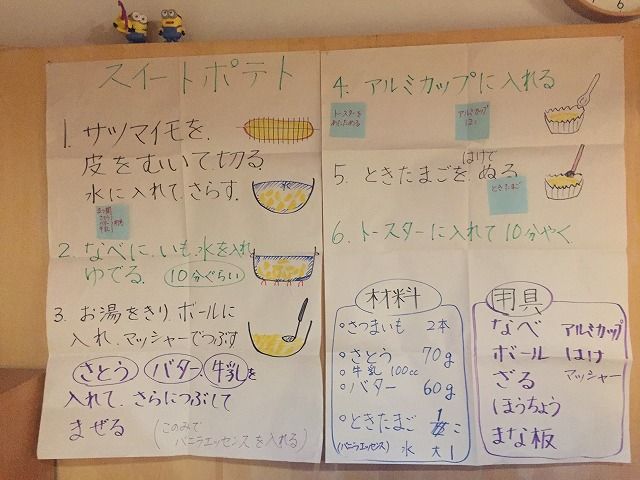 スイートポテト
1. サツマイモを、
皮をむいて、切る。
水に入れて、さらす。
水
2. なべに、いも、水を入れ
ゆでる。 10分ぐらい
3. お湯をきり、ボールに
入れ、マッシャーでつぶす
さとう バター 牛乳を
入れて、さらにつぶして
まぜる (このみで
バニラエッセンスを入れる)
4. アルミカップに入れる
トースターを
あたためる
アルミカップ
はい
5. ときたまごを、はけで ぬる
ときたまご
6. トースターに入れて10分やく。
材料
○さつまいも 2本
○さとう 70g
○牛乳 100cc
○バター 60g
○ときたまご 1こ
(バニラエッセンス) 水 大1
用具
なべ アルミカップ
ボール はけ
ざる マッシャー
ほうちょう
まな板